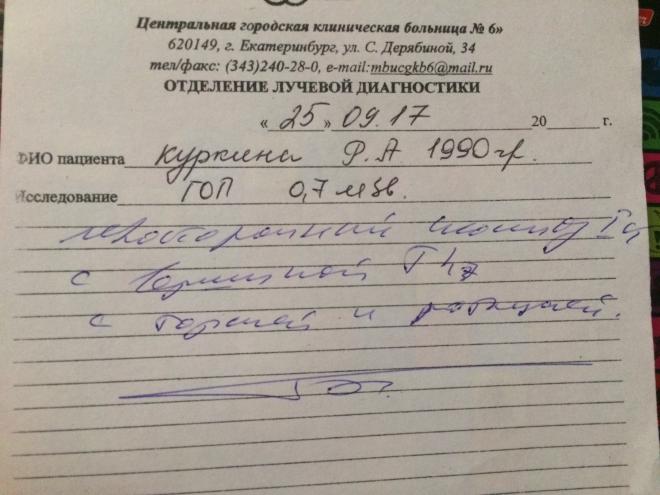 Центральная городская клиническая больница № 6»
620149, г. Екатеринбург, ул. С. Дерябиной, 34
тел/факс: (343)240-28-0, e-mail:mbucgkb6@mail.ru
ОТДЕЛЕНИЕ ЛУЧЕВОЙ ДИАГНОСТИКИ
« 25 » 09.17 20 г.
ФИО пациента Куркина Р.А 1990 гр.
Исследование ГОП 0,7 мЗв.
левосторонний сколиоз I ст
с вершиной Th7
с торсией и ротацией.